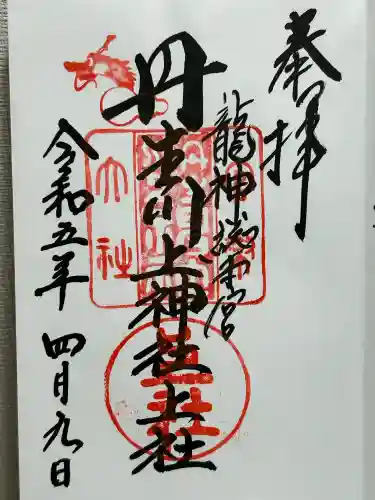 奉拝
龍神総本宮
丹生川上神社上社
令和五年 四月九日